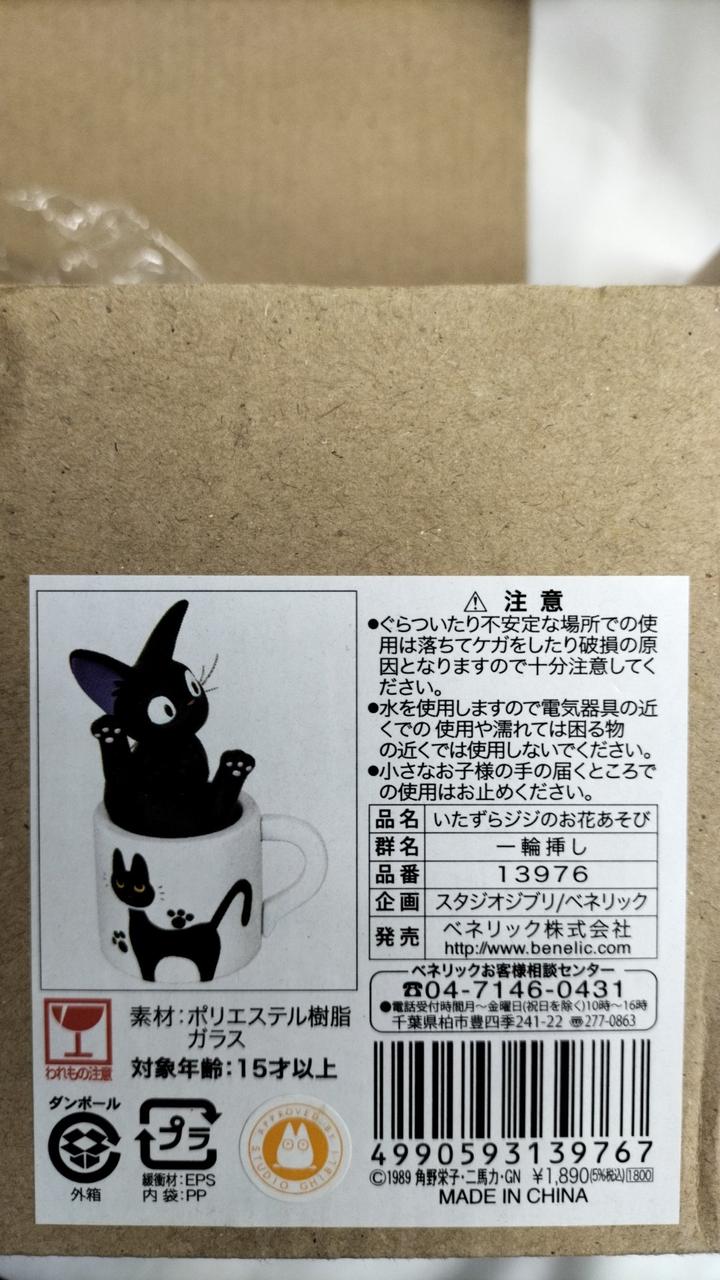 ⚠ 注意
●ぐらついたり不安定な場所での使
用は落ちてケガをしたり破損の原
因となりますので十分注意してく
ださい。
●水を使用しますので電気器具の近
くでの 使用や濡れては困る物
の近くでは使用しないでください。
●小さなお子様の手の届くところで
の使用はお止めください。
品名 いたずらジジのお花あそび
群名 一輪挿し
品番 13976
企画 スタジオジブリ/ベネリック
発売 ベネリック株式会社
http://www.benelic.com
ベネリックお客様相談センター
☎04-7146-0431
●電話受付時間月〜金曜日(祝日を除く)10時〜16時
千葉県柏市豊四季241-22 〠277-0863
われもの注意
素材:ポリエステル樹脂
ガラス
対象年齢:15才以上
ダンボール
外箱
プラ
緩衝材:EPS
内袋:PP
APPROVED BY
STUDIO GHIBLI
4990593139767
©1989 角野栄子・二馬力・GN ¥1,890(5%税込)1800
MADE IN CHINA